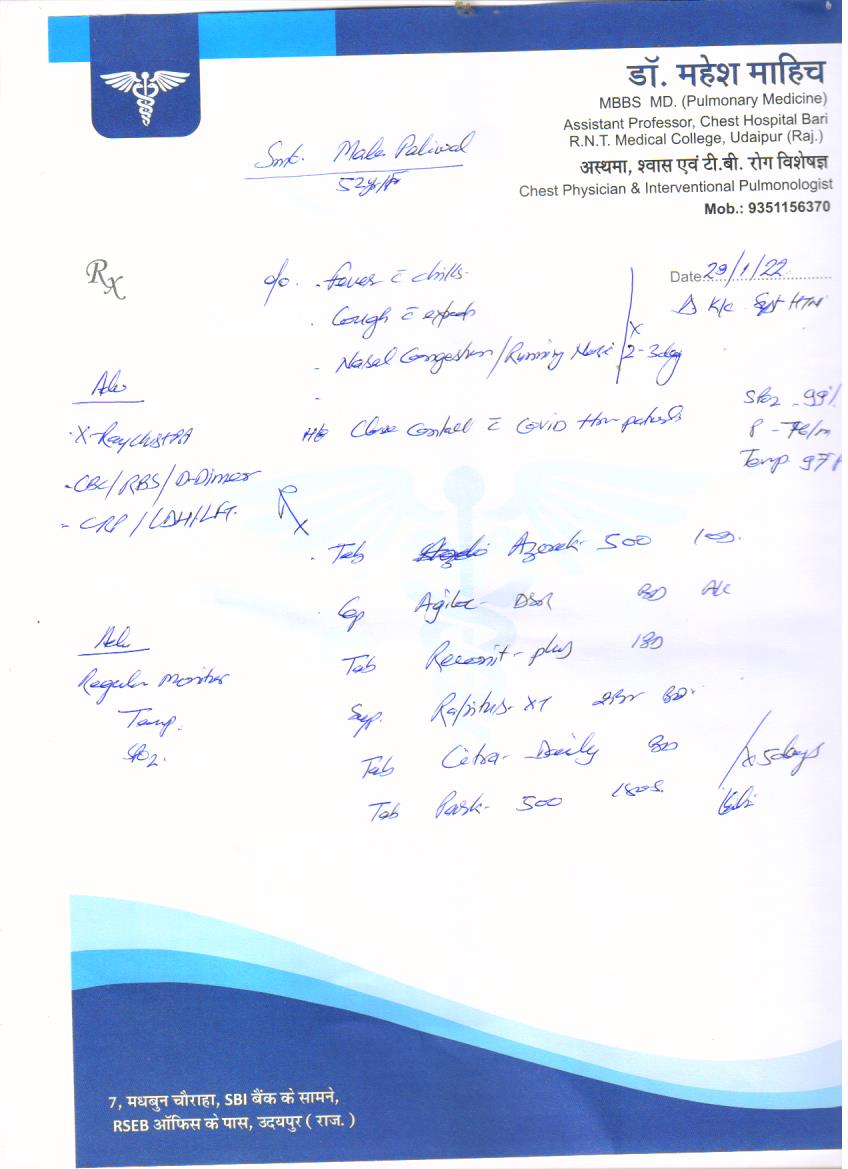 डॉ. महेश माहिच
MBBS MD. (Pulmonary Medicine)
Assistant Professor, Chest Hospital Bari
R.N.T. Medical College, Udaipur (Raj.)
अस्थमा, श्वास एवं टी.बी. रोग विशेषज्ञ
Chest Physician & Interventional Pulmonologist
Mob.: 9351156370
Smt. Mala Paliwal
52yr/F
Rx
Date 29/1/22
c/o. - Fever c chills
K/c HTN
. Cough c expecto
- Nasal Congestion / Running Nose x 2-3day
Adv
- X-Ray Chest PA
- CBC/RBS/D-Dimer
- CRP/LDH/LFT
H/o Close Contact c Covid patients
SPO2 - 99%
P - 76/m
Temp 97F
Rx
. Tab 500
. Cap DSR BD
Tab plus 1BD
Syp. XT BD
Tab Daily BD
Tab 500
x 5days
Adv
Regular Monitor
Temp.
SPO2.
7, मधुबन चौराहा, SBI बैंक के सामने,
RSEB ऑफिस के पास, उदयपुर ( राज. )